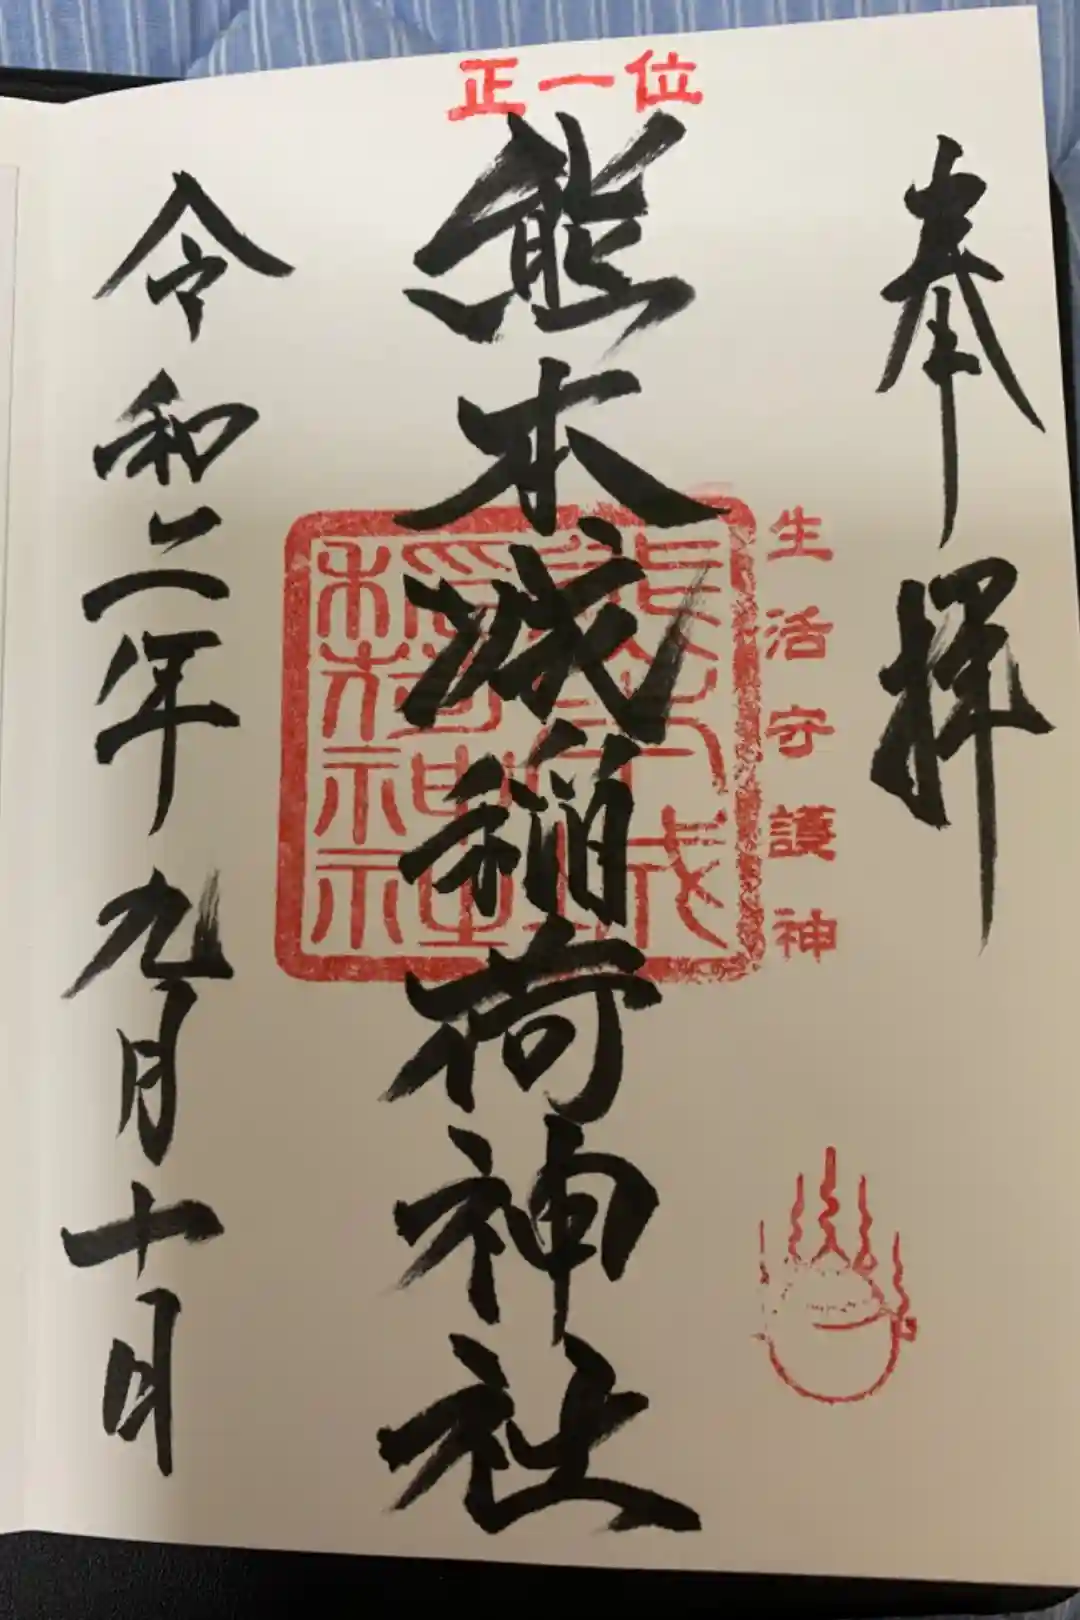 奉拝
生活守護神
正一位
熊本城稲荷神社
熊本城
稲荷神社
令和二年九月十日